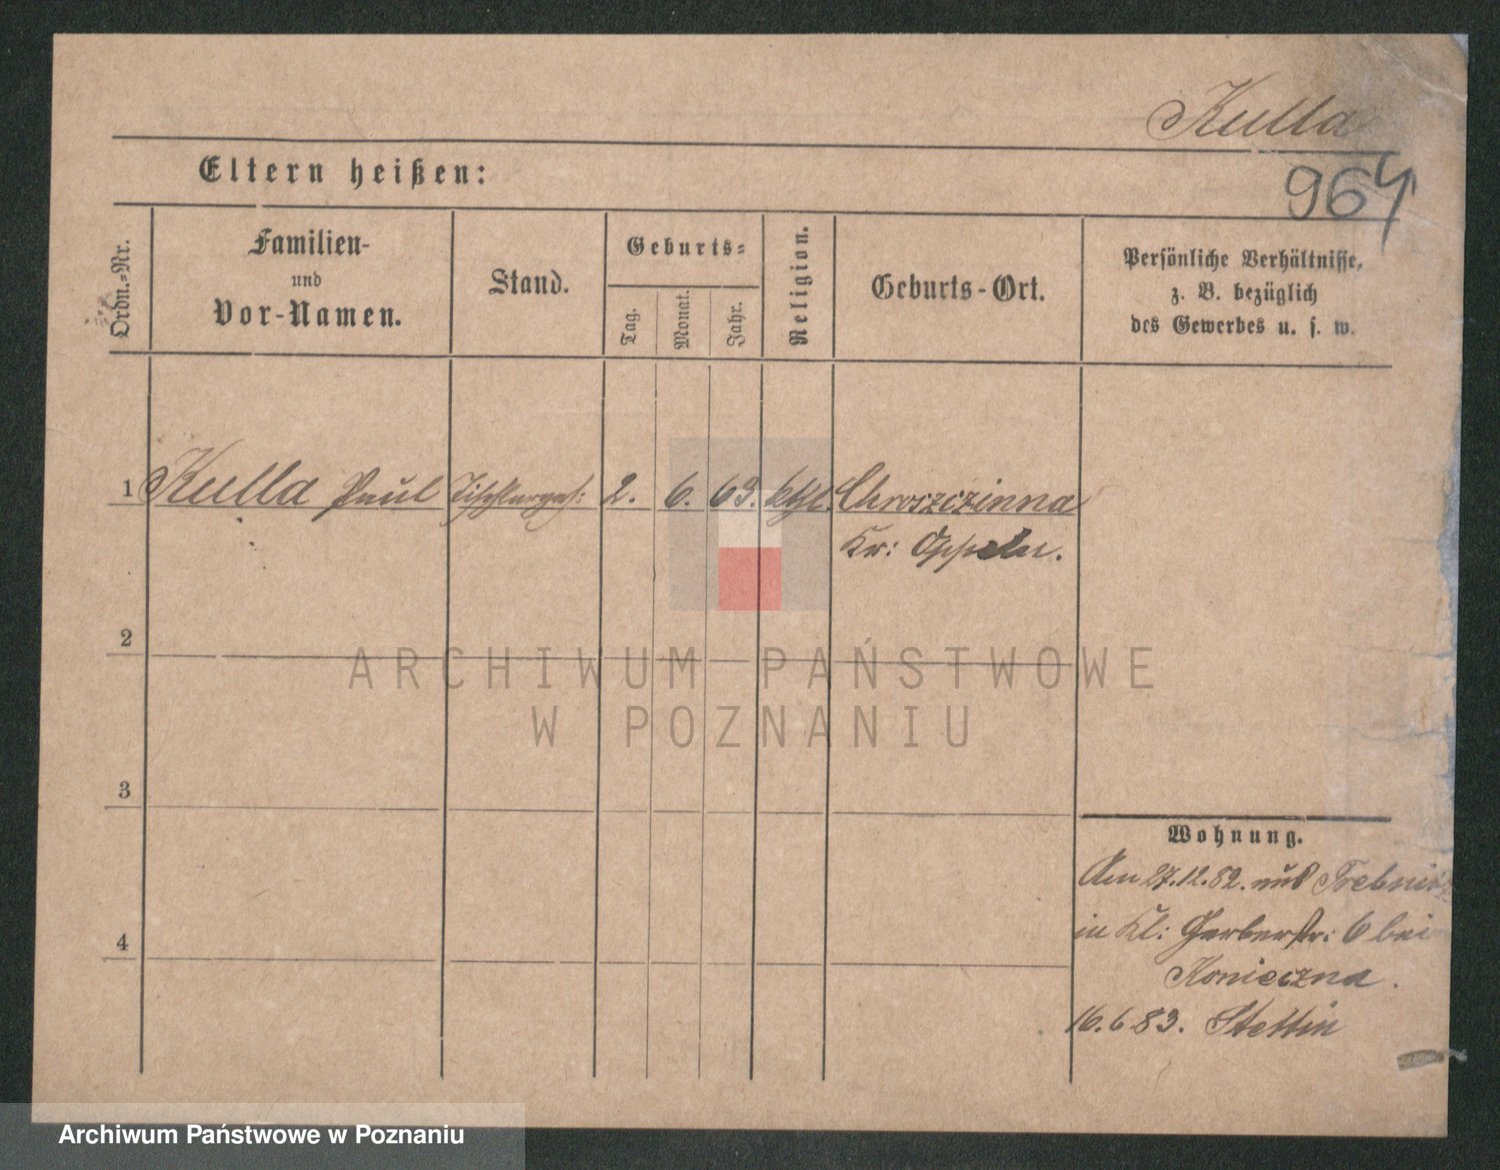 Kulla
964
Eltern heißen:
Ordn.-Nr.
Familien-
und
Vor-Namen.
Stand.
Geburts-
Tag.
Monat.
Jahr.
Religion.
Geburts-Ort.
Persönliche Verhältnisse,
z. B. bezüglich
des Gewerbes u. s. w.
1 Kulla Paul Tischlerges: 2. 6. 63. kthl. Chroszczinna
Kr: Oppeln.
2
3
4
Wohnung.
Am 27.12.82. aus Trebnitz
in Kl: Gerberstr: 6 bei
Konieczna.
16.6.83. Stettin
ARCHIWUM PAŃSTWOWE
W POZNANIU
Archiwum Państwowe w Poznaniu